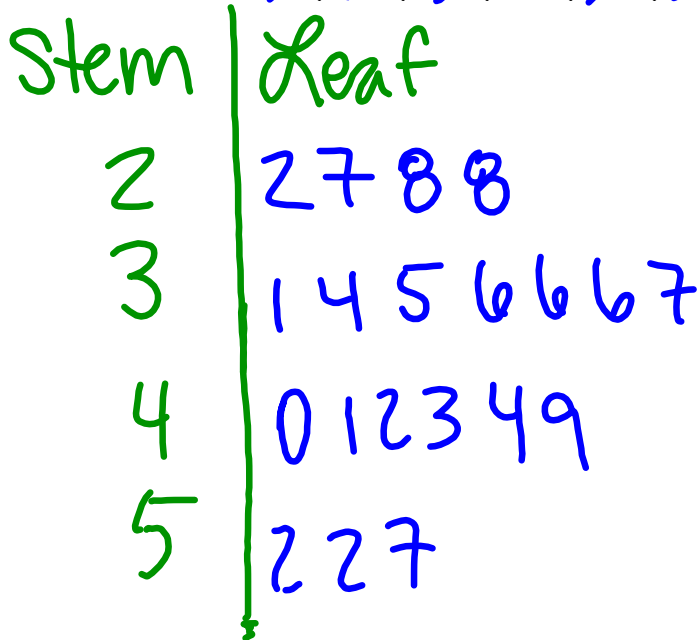 Stem Leaf
2 2 7 8 8
3 1 4 5 6 6 6 7
4 0 1 2 3 4 9
5 2 2 7